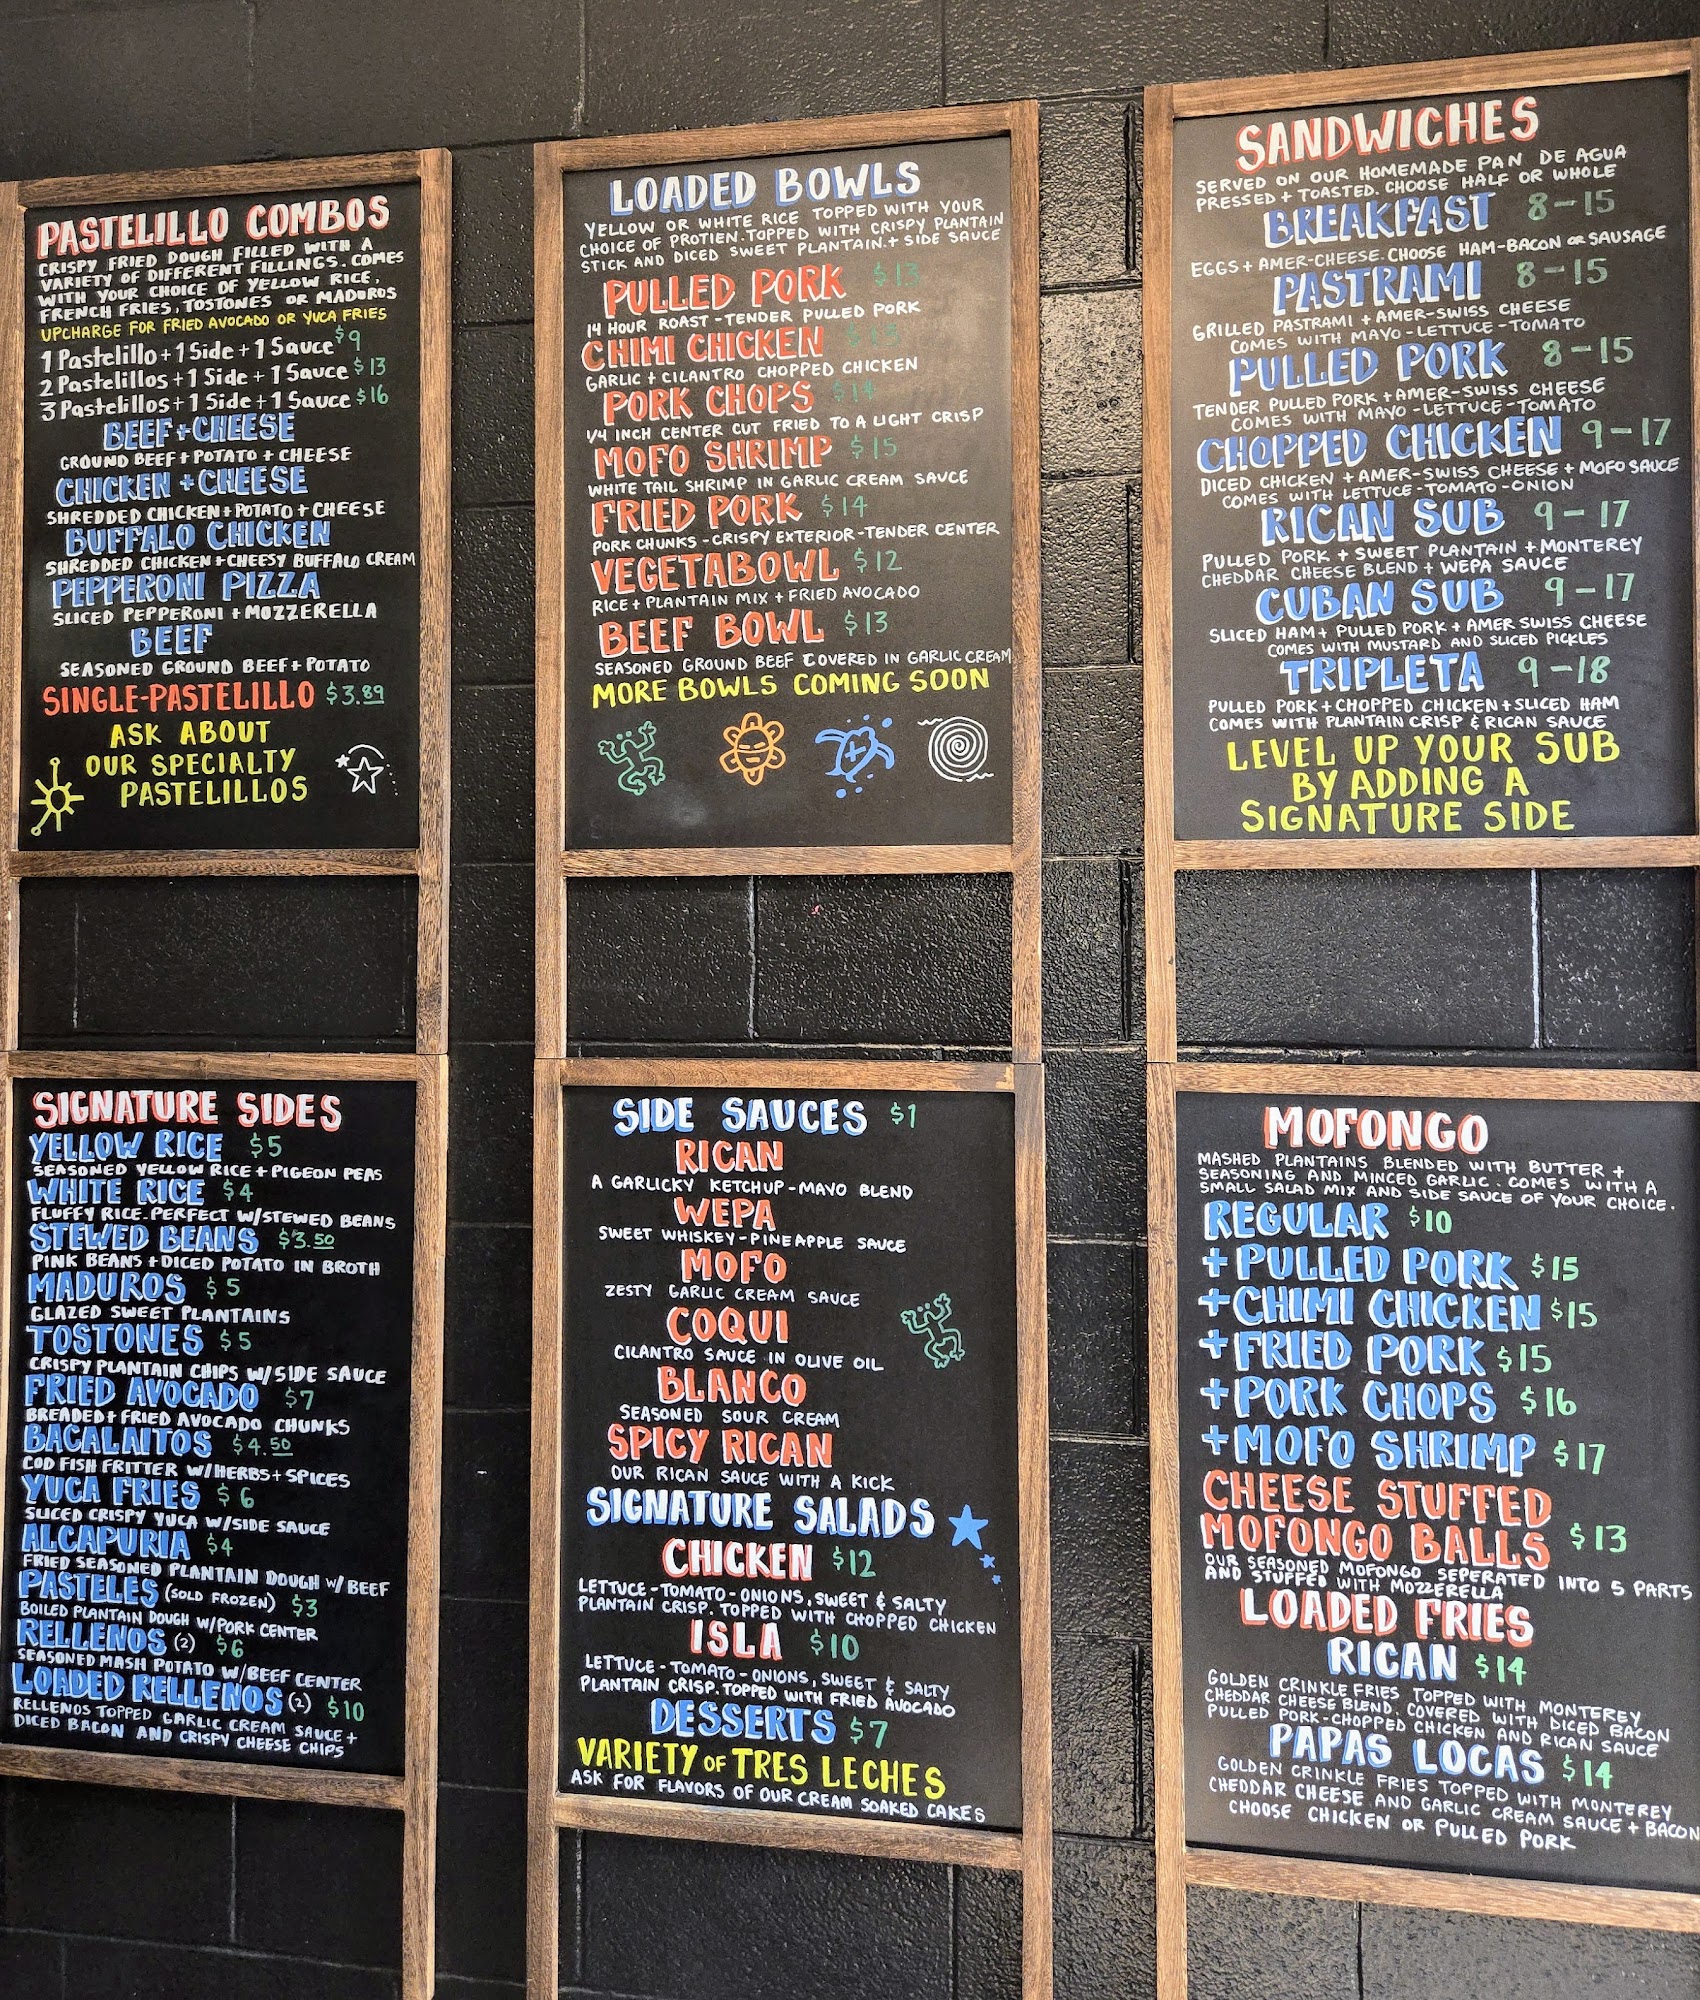 PASTELILLO COMBOS
CRISPY FRIED DOUGH FILLED WITH A
VARIETY OF DIFFERENT FILLINGS. COMES
WITH YOUR CHOICE OF YELLOW RICE,
FRENCH FRIES, TOSTONES OR MADUROS
UPCHARGE FOR FRIED AVOCADO OR YUCA FRIES
1 Pastelillo + 1 Side + 1 Sauce $9
2 Pastelillos + 1 Side + 1 Sauce $13
3 Pastelillos + 1 Side + 1 Sauce $16
BEEF + CHEESE
GROUND BEEF + POTATO + CHEESE
CHICKEN + CHEESE
SHREDDED CHICKEN + POTATO + CHEESE
BUFFALO CHICKEN
SHREDDED CHICKEN + CHEESY BUFFALO CREAM
PEPPERONI PIZZA
SLICED PEPPERONI + MOZZERELLA
BEEF
SEASONED GROUND BEEF + POTATO
SINGLE-PASTELILLO $3.89
ASK ABOUT
OUR SPECIALTY
PASTELILLOS
LOADED BOWLS
YELLOW OR WHITE RICE TOPPED WITH YOUR
CHOICE OF PROTIEN. TOPPED WITH CRISPY PLANTAIN
STICK AND DICED SWEET PLANTAIN. + SIDE SAUCE
PULLED PORK $13
14 HOUR ROAST - TENDER PULLED PORK
CHIMI CHICKEN
GARLIC + CILANTRO CHOPPED CHICKEN
PORK CHOPS $14
1/4 INCH CENTER CUT FRIED TO A LIGHT CRISP
MOFO SHRIMP $15
WHITE TAIL SHRIMP IN GARLIC CREAM SAUCE
FRIED PORK $14
PORK CHUNKS - CRISPY EXTERIOR - TENDER CENTER
VEGETABOWL $12
RICE + PLANTAIN MIX + FRIED AVOCADO
BEEF BOWL $13
SEASONED GROUND BEEF COVERED IN GARLIC CREAM
MORE BOWLS COMING SOON
SANDWICHES
SERVED ON OUR HOMEMADE PAN DE AGUA
PRESSED + TOASTED. CHOOSE HALF OR WHOLE
BREAKFAST 8-15
EGGS + AMER-CHEESE. CHOOSE HAM-BACON OR SAUSAGE
PASTRAMI 8-15
GRILLED PASTRAMI + AMER-SWISS CHEESE
COMES WITH MAYO - LETTUCE - TOMATO
PULLED PORK 8-15
TENDER PULLED PORK + AMER-SWISS CHEESE
COMES WITH MAYO - LETTUCE - TOMATO
CHOPPED CHICKEN 9-17
DICED CHICKEN + AMER-SWISS CHEESE + MOFO SAUCE
COMES WITH LETTUCE - TOMATO - ONION
RICAN SUB 9-17
PULLED PORK + SWEET PLANTAIN + MONTEREY
CHEDDAR CHEESE BLEND + WEPA SAUCE
CUBAN SUB 9-17
SLICED HAM + PULLED PORK + AMER SWISS CHEESE
COMES WITH MUSTARD AND SLICED PICKLES
TRIPLETA 9-18
PULLED PORK + CHOPPED CHICKEN + SLICED HAM
COMES WITH PLANTAIN CRISP & RICAN SAUCE
LEVEL UP YOUR SUB
BY ADDING A
SIGNATURE SIDE
SIGNATURE SIDES
YELLOW RICE $5
SEASONED YELLOW RICE + PIGEON PEAS
WHITE RICE $4
FLUFFY RICE-PERFECT W/STEWED BEANS
STEWED BEANS $3.50
PINK BEANS + DICED POTATO IN BROTH
MADUROS $5
GLAZED SWEET PLANTAINS
TOSTONES $5
CRISPY PLANTAIN CHIPS W/SIDE SAUCE
FRIED AVOCADO $7
BREADED + FRIED AVOCADO CHUNKS
BACALAITOS $4.50
COD FISH FRITTER W/HERBS + SPICES
YUCA FRIES $6
SLICED CRISPY YUCA W/SIDE SAUCE
ALCAPURIA $4
FRIED SEASONED PLANTAIN DOUGH W/ BEEF
PASTELES (SOLD FROZEN) $3
BOILED PLANTAIN DOUGH W/PORK CENTER
RELLENOS (2) $6
SEASONED MASH POTATO W/BEEF CENTER
LOADED RELLENOS (2) $10
RELLENOS TOPPED GARLIC CREAM SAUCE +
DICED BACON AND CRISPY CHEESE CHIPS
SIDE SAUCES $1
RICAN
A GARLICKY KETCHUP-MAYO BLEND
WEPA
SWEET WHISKEY-PINEAPPLE SAUCE
MOFO
ZESTY GARLIC CREAM SAUCE
COQUI
CILANTRO SAUCE IN OLIVE OIL
BLANCO
SEASONED SOUR CREAM
SPICY RICAN
OUR RICAN SAUCE WITH A KICK
SIGNATURE SALADS
CHICKEN $12
LETTUCE - TOMATO - ONIONS, SWEET & SALTY
PLANTAIN CRISP. TOPPED WITH CHOPPED CHICKEN
ISLA $10
LETTUCE - TOMATO - ONIONS, SWEET & SALTY
PLANTAIN CRISP. TOPPED WITH FRIED AVOCADO
DESSERTS $7
VARIETY OF TRES LECHES
ASK FOR FLAVORS OF OUR CREAM SOAKED CAKES
MOFONGO
MASHED PLANTAINS BLENDED WITH BUTTER +
SEASONING AND MINCED GARLIC. COMES WITH A
SMALL SALAD MIX AND SIDE SAUCE OF YOUR CHOICE.
REGULAR $10
+ PULLED PORK $15
+ CHIMI CHICKEN $15
+ FRIED PORK $15
+ PORK CHOPS $16
+ MOFO SHRIMP $17
CHEESE STUFFED
MOFONGO BALLS $13
OUR SEASONED MOFONGO SEPERATED INTO 5 PARTS
AND STUFFED WITH MOZZERELLA
LOADED FRIES
RICAN $14
GOLDEN CRINKLE FRIES TOPPED WITH MONTEREY
CHEDDAR CHEESE BLEND. COVERED WITH DICED BACON
PULLED PORK-CHOPPED CHICKEN AND RICAN SAUCE
PAPAS LOCAS $14
GOLDEN CRINKLE FRIES TOPPED WITH MONTEREY
CHEDDAR CHEESE AND GARLIC CREAM SAUCE + BACON
CHOOSE CHICKEN OR PULLED PORK